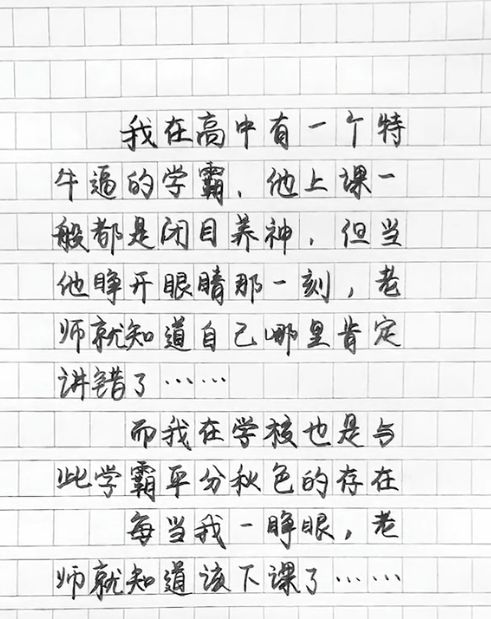 我在高中有一个特
牛逼的学霸，他上课一
般都是闭目养神，但当
他睁开眼睛那一刻，老
师就知道自己哪里肯定
讲错了……
而我在学校也是与
此学霸平分秋色的存在
每当我一睁眼，老
师就知道该下课了……